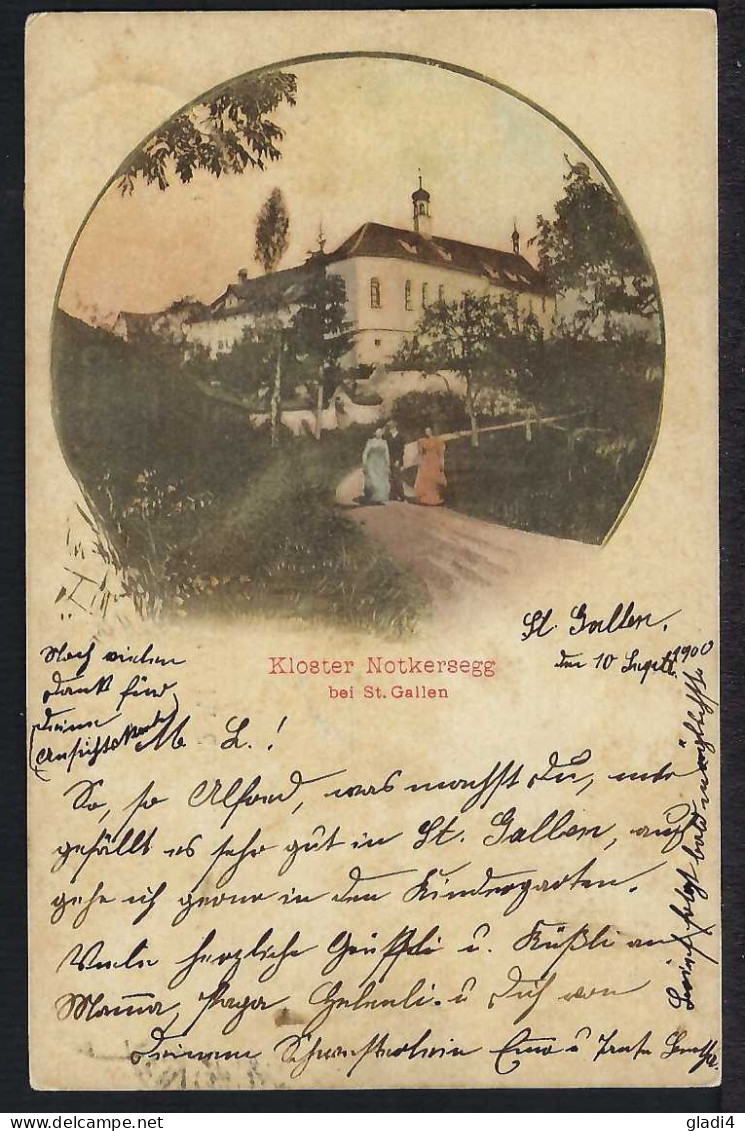 St. Gallen,
den 10 Sept. 1900
Kloster Notkersegg
bei St. Gallen
Noch vielen
Dank für
Deine
Ansichtskarte
M. L.!
So, so Alfred, was machst Du, mir
gefällt es sehr gut in St. Gallen, auch
gehe ich gerne in den Kindergarten.
Viele herzliche Grüssli u. Küßli an
Mama, Papa, Helenli u Dich von
Deinem Schwesterlein Emo u Tante Bertha.
Brief folgt bald möglichst
delcampe.net
gladi4